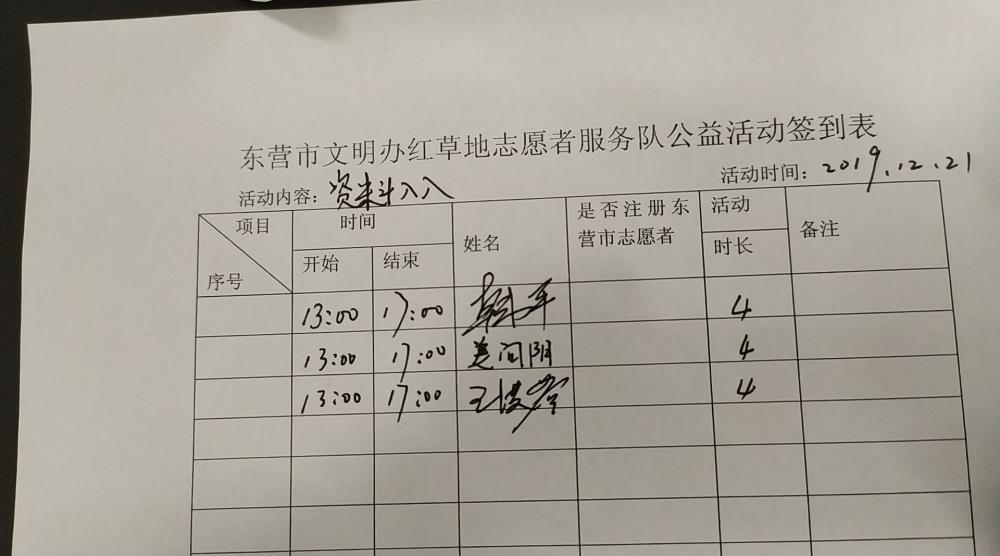 东营市文明办红草地志愿者服务队公益活动签到表
活动内容：资料入 活动时间：2019.12.21
项目 序号 时间 姓名 是否注册东营市志愿者 活动时长 备注
开始 结束
13:00 17:00 4
13:00 17:00 4
13:00 17:00 4